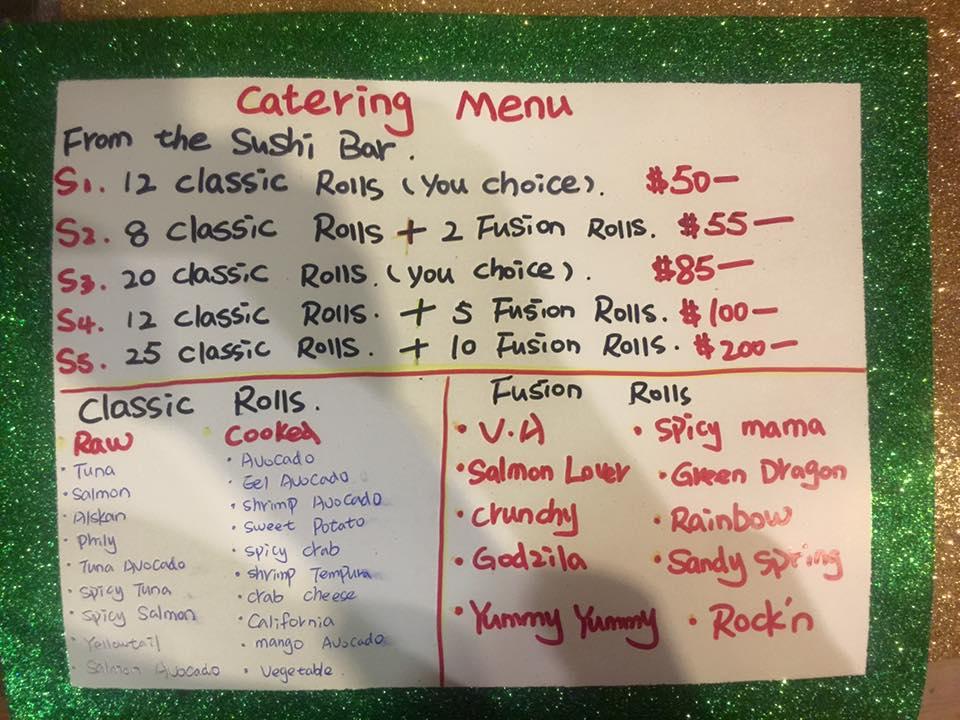 Catering Menu
From the Sushi Bar.
S1. 12 classic Rolls (you choice). $50—
S2. 8 classic Rolls + 2 Fusion Rolls. $55—
S3. 20 classic Rolls. (you choice). $85—
S4. 12 classic Rolls. + 5 Fusion Rolls. $100—
S5. 25 classic Rolls. + 10 Fusion Rolls. $200—
Classic Rolls.
Raw
• Tuna
• Salmon
• Alskan
• Phily
• Tuna Avocado
• Spicy Tuna
• Spicy Salmon
• Yellowtail
• Salmon Avocado
Cooked
• Avocado
• Eel Avocado
• shrimp Avocado
• sweet Potato
• spicy crab
• shrimp Tempura
• crab cheese
• California
• mango Avocado
• Vegetable.
Fusion Rolls
• V.A
• Salmon Lover
• crunchy
• Godzila
• Yummy Yummy
• Spicy mama
• Green Dragon
• Rainbow
• Sandy spring
• Rock'n